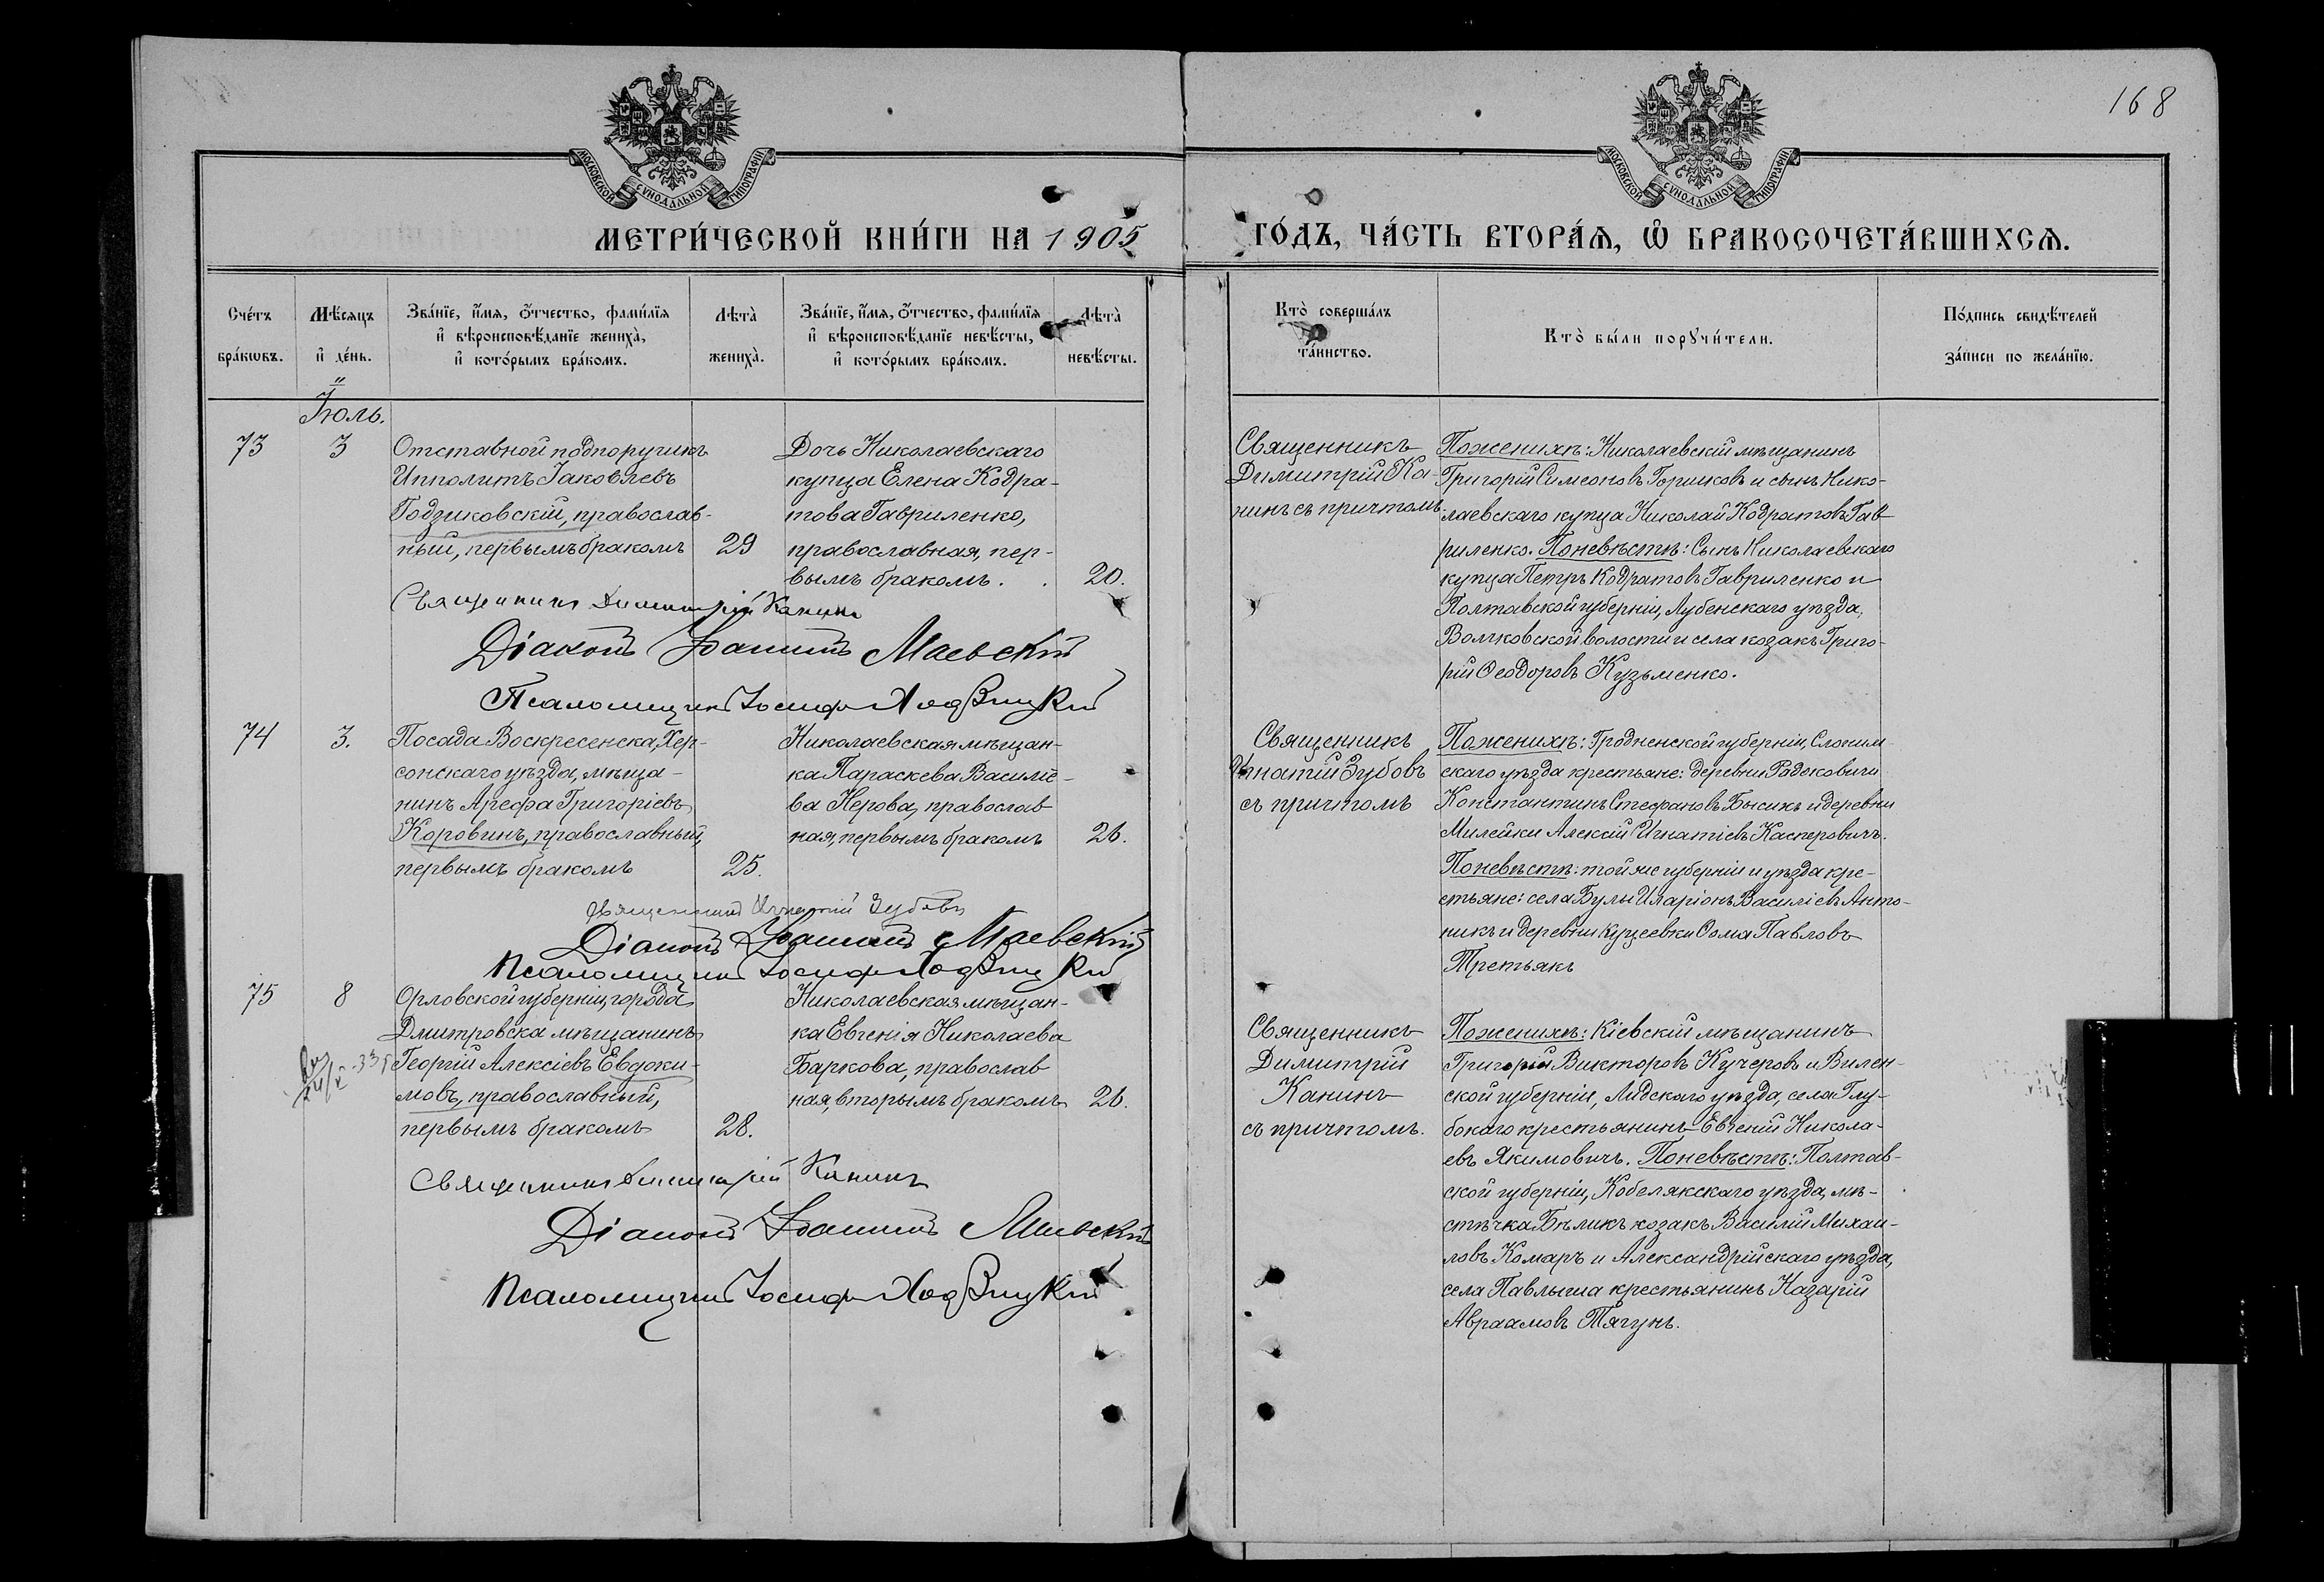 168
МОСКОВСКОЙ СѴНОДАЛЬНОЙ ТИПОГРАФІИ
МОСКОВСКОЙ СѴНОДАЛЬНОЙ ТИПОГРАФІИ
МЕТРИ́ЧЕСКОЙ КНИ́ГИ НА 1905
ГО́ДЪ, ЧА́СТЬ ВТОРА́Ѧ, Ѡ҆ БРАКОСОЧЕТА́ВШИХСѦ.
Сче́тъ
бра́кѡвъ.
Мѣ́сѧцъ
и҆ де́нь.
Зва́нїе, и҆́мѧ, ѻ҆́тчество, фами́лїѧ
и҆ вѣроисповѣ́данїе жениха̀,
и҆ кото́рымъ бра́комъ.
Лѣта̀
жениха̀.
Зва́нїе, и҆́мѧ, ѻ҆́тчество, фами́лїѧ
и҆ вѣроисповѣ́данїе невѣ́сты,
и҆ кото́рымъ бра́комъ.
Лѣта̀
невѣ́сты.
Кто̀ соверша́лъ
та́инство.
Кто̀ бы́ли порꙋчи́тели.
По́дпись свидѣ́телей
за́писи по жела́нїю.
Іюль.
73
3
Отставной подпоручикъ
Ипполитъ Іаковлевъ
Годзиковскій, православ-
ный, первымъ бракомъ
29
Дочь Николаевскаго
купца Елена Кодра-
това Гавриленко,
православная, пер-
вымъ бракомъ.
20.
Священникъ
Димитрій Ка-
нинъ съ причтомъ
По женихѣ: Николаевскій мѣщанинъ
Григорій Симеоновъ Горшковъ и сынъ Нико-
лаевскаго купца Николай Кодратовъ Гав-
риленко. По невѣстѣ: Сынъ Николаевскаго
купца Петръ Кодратовъ Гавриленко и
Полтавской губерніи, Лубенскаго уѣзда,
Волчковской волости и села козакъ Григо-
рій Ѳеодоровъ Кузьменко.
Священникъ Димитрій Канинъ
Діаконъ Іоаннъ Маевскій
Псаломщикъ Іосифъ Ходзицкій
74
3.
Посада Воскресенска, Хер-
сонскаго уѣзда, мѣща-
нинъ Арефа Григоріевъ
Коровинъ, православный,
первымъ бракомъ
25.
Николаевская мѣщан-
ка Параскева Василіе-
ва Нерова, православ
ная, первымъ бракомъ
26.
Священникъ
Игнатій Зубовъ
съ причтомъ
По женихѣ: Гродненской губерніи, Слоним-
скаго уѣзда крестьяне: деревни Радковичи
Константинъ Стефановъ Бысикъ и деревни
Милейки Алексій Игнатіевъ Касперовичъ.
По невѣстѣ: той же губерніи и уѣзда кре-
стьяне: села Булы Иларіонъ Василіевъ Анто-
никъ и деревни Куцеевки Ѳома Павловъ
Третьякъ
Священникъ Игнатій Зубовъ
Діаконъ Іоаннъ Маевскій
Псаломщикъ Іосифъ Ходзицкій
75
8
Орловской губерніи, города
Дмитровска мѣщанинъ
Георгій Алексіевъ Евдоки-
мовъ, православный,
первымъ бракомъ
28.
Николаевская мѣщан-
ка Евгенія Николаева
Баркова, православ
ная, вторымъ бракомъ
26.
Священникъ
Димитрій
Канинъ
съ причтомъ.
По женихѣ: Кіевскій мѣщанинъ
Григорій Викторовъ Кучеровъ и Вилен-
ской губерніи, Лидскаго уѣзда, села Глу-
бокаго крестьянинъ Евгеній Никола-
евъ Якимовичъ. По невѣстѣ: Полтав-
ской губерніи, Кобелякскаго уѣзда, мѣ-
стечка Бѣликъ козакъ Василій Михаи-
ловъ Комаръ и Александрійскаго уѣзда,
села Павлыша крестьянинъ Назарій
Авраамовъ Тягунъ.
Священникъ Димитрій Канинъ
Діаконъ Іоаннъ Маевскій
Псаломщикъ Іосифъ Ходзицкій